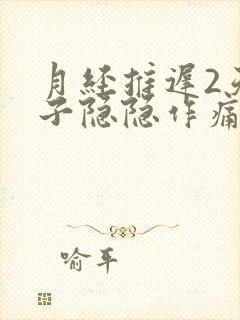 月经推迟2天
子隐隐作痛
喻平